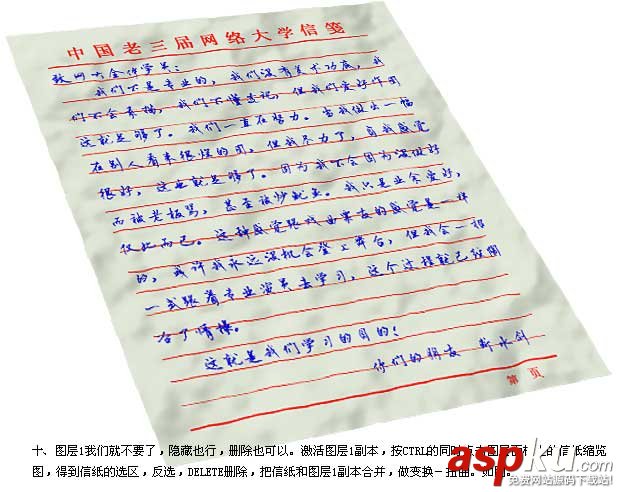 中国老三届网络大学信笺
致网大全体学员：
我们不是专业的，我们没有美术功底，我
们不会素描，我们不懂速记，但我们爱好作图
这就足够了。我们一直在努力。当我做出一幅
在别人看来很烂的图，但我尽力了，自我感觉
很好，这也就足够了。因为我不会因为没做好
而被老板骂，甚至被炒鱿鱼。我只是业余爱好，
仅此而已。这种感觉跟戏曲票友的感觉是一样
的，或许我永远没机会登上舞台，但我会一招
一式跟着专业演员去学习，这个过程就已经陶
冶了情操。
这就是我们学习的目的！
你们的朋友 靳永剑
第 页
十、图层1我们就不要了，隐藏也行，删除也可以。激活图层1副本，按CTRL的同时点击图层面板上的信纸缩览
图，得到信纸的选区，反选，DELETE删除，把信纸和图层1副本合并，做变换－扭曲。如图。
aspku.com
免费网站源码下载站!